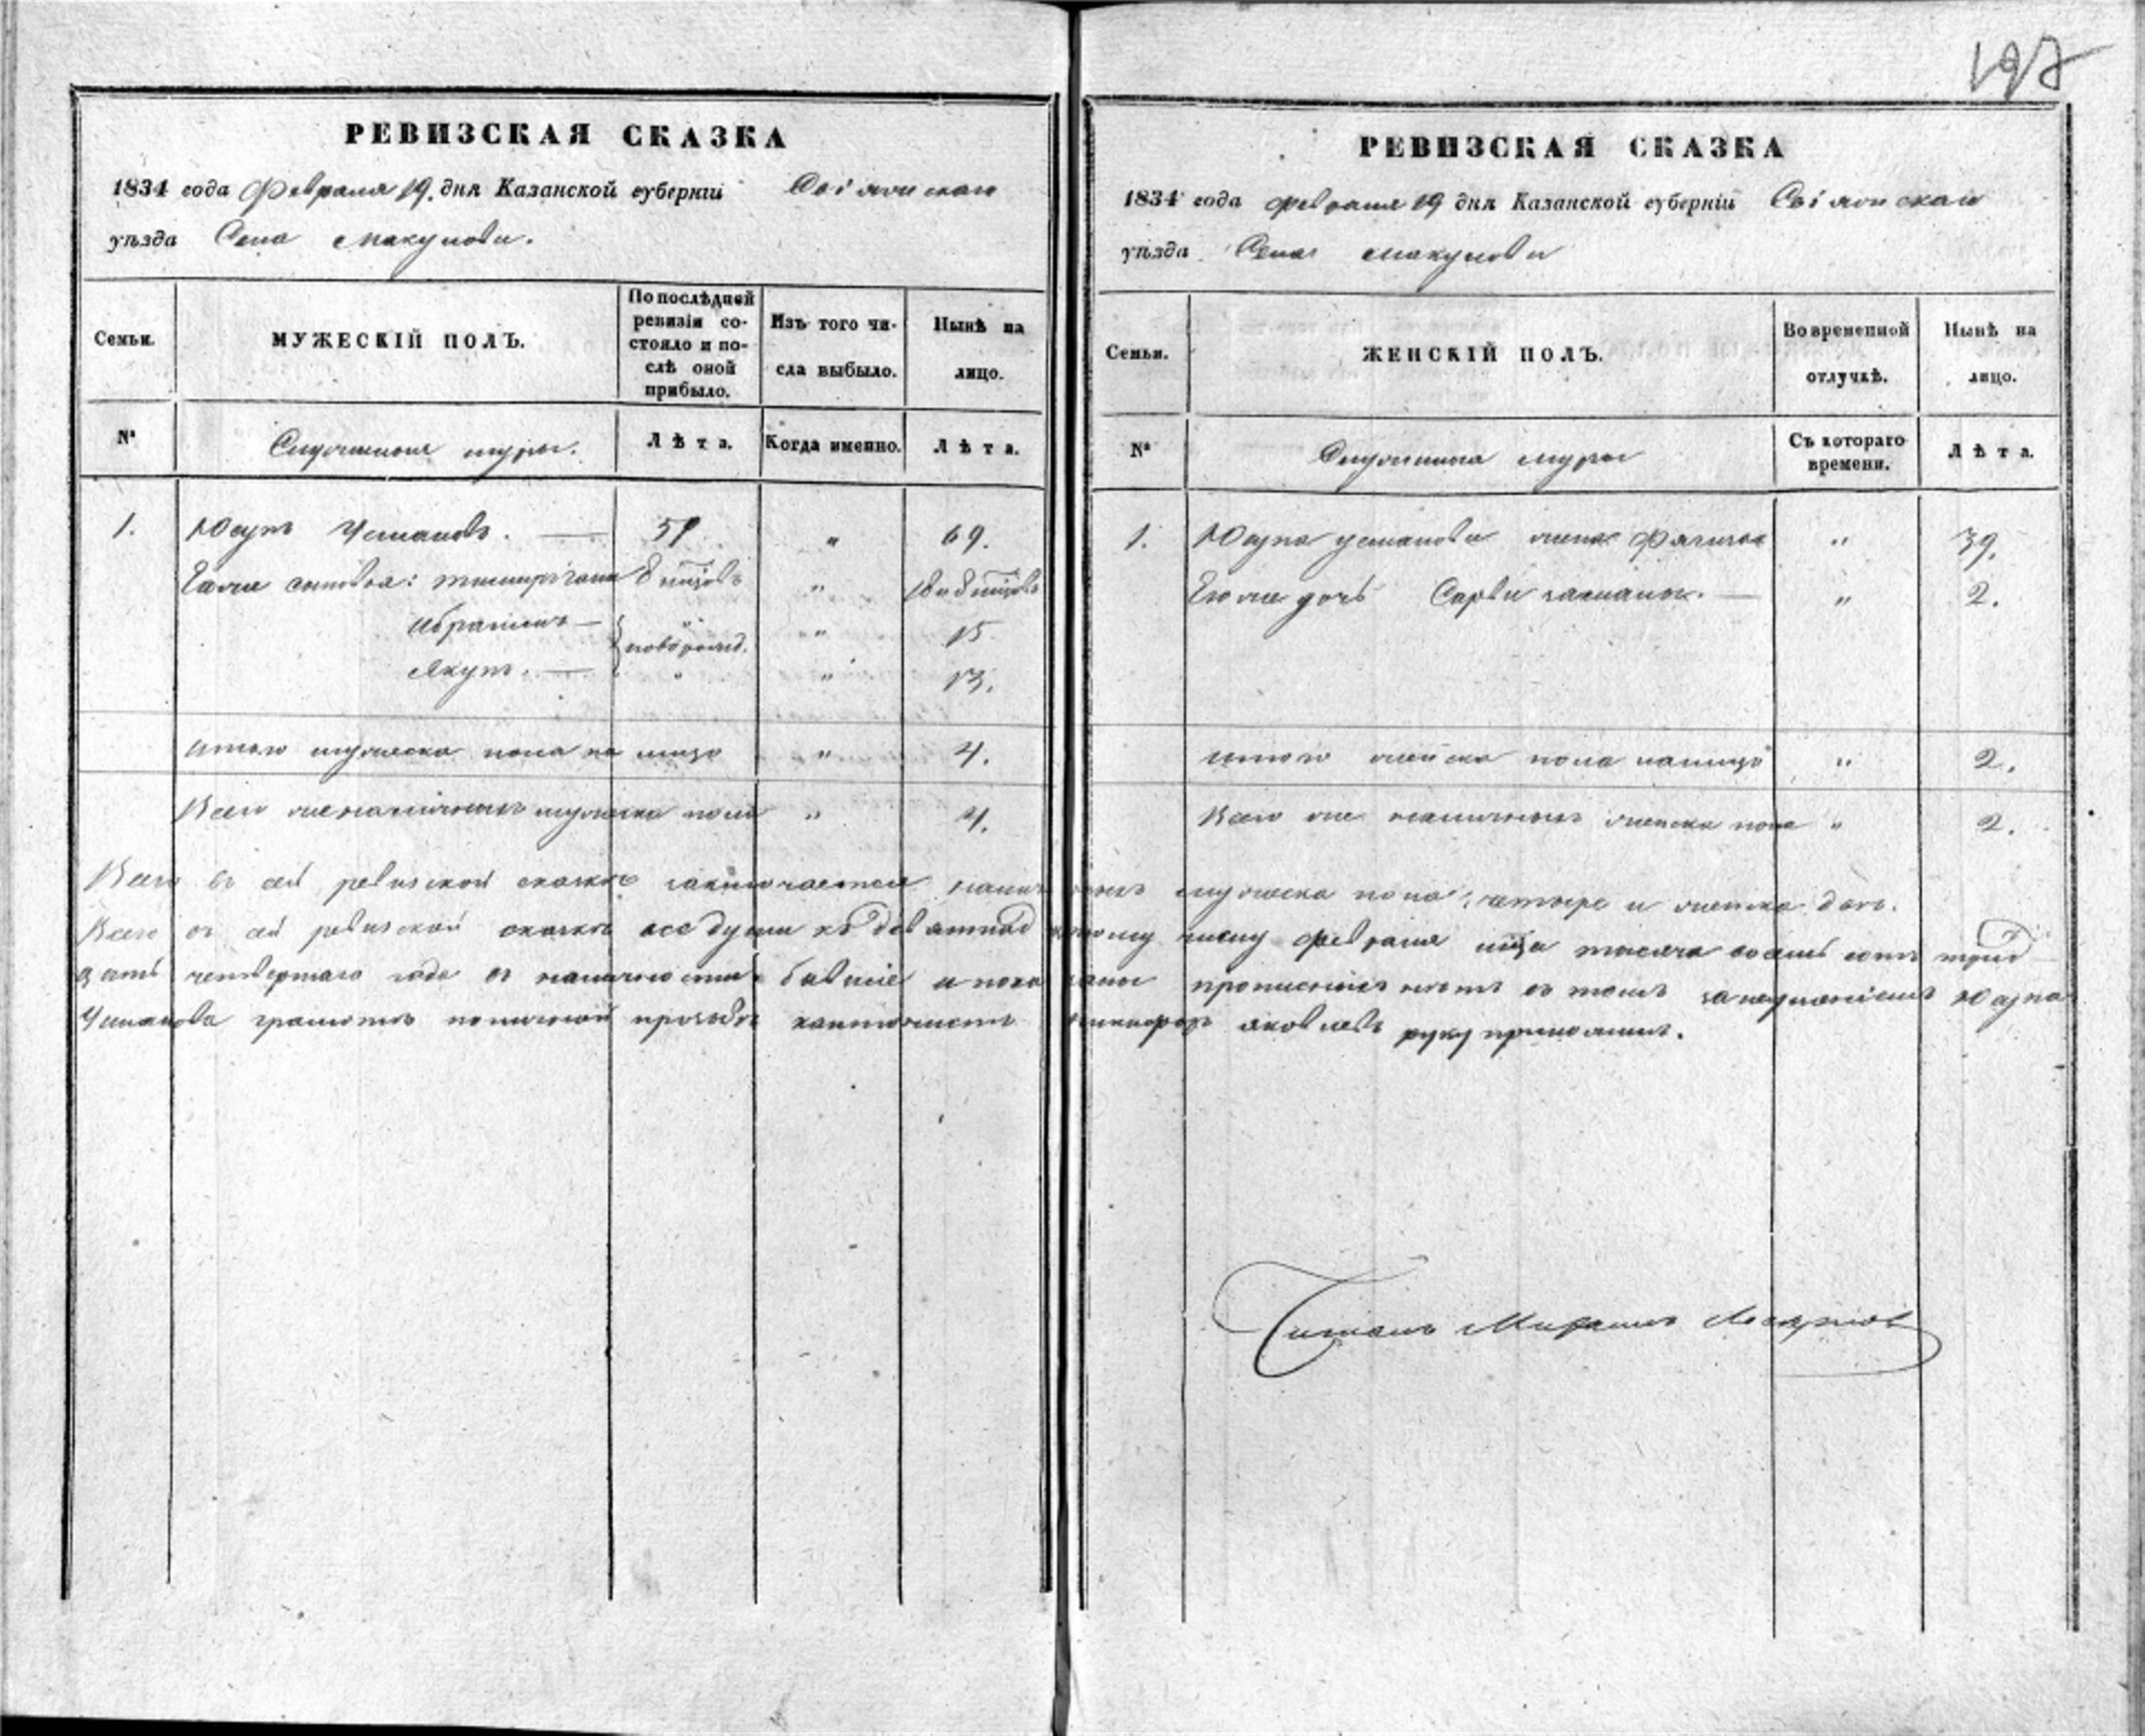 197
РЕВИЗСКАЯ СКАЗКА
1834 года Февраля 19. дня Казанской губерніи Свіяжскаго
уѣзда Села Макулова.
Семьи.
МУЖЕСКІЙ ПОЛЪ.
По послѣдней ревизіи со-
стояло и по-
слѣ оной
прибыло.
Изъ того чи-
сла выбыло.
Нынѣ на
лицо.
№
Служилыя муры.
Лѣта.
Когда именно.
Лѣта.
1. Юсупъ Усмановъ. — 51 " 69.
Его же сыновья: 8 мцовъ " 18 и 8 мцовъ
Ибрагимъ — " "" 15
новорожд.
Якупъ. — " " 13.
итого мужеска пола на лицо " 4.
Всего же наличныхъ мужеска пола " 4.
РЕВИЗСКАЯ СКАЗКА
1834 года февраля 19 дня Казанской губерніи Свіяжскаго
уѣзда Села Макулова
Семьи.
ЖЕНСКІЙ ПОЛЪ.
Во временной
отлучкѣ.
Нынѣ на
лицо.
№
Служилыя муры
Съ котораго
времени.
Лѣта.
1. Юсупа Усманова жена " 39.
Его же дочь — " 2.
итого женска пола налицо " 2.
Всего же наличныхъ женска пола " 2.
Всего въ сей ревизской сказкѣ заключается наличныхъ мужеска пола: четыре и женска двѣ.
Всего въ сей ревизской сказкѣ все души къ девятнадцатому числу февраля мца тысяча восемь сотъ трид-
цать четвертаго года въ наличности бывшіе и показаны прописныхъ нѣтъ въ томъ за неумѣніемъ Юсупа
Усманова грамотѣ по личной прозьбѣ яковлевъ руку приложилъ.